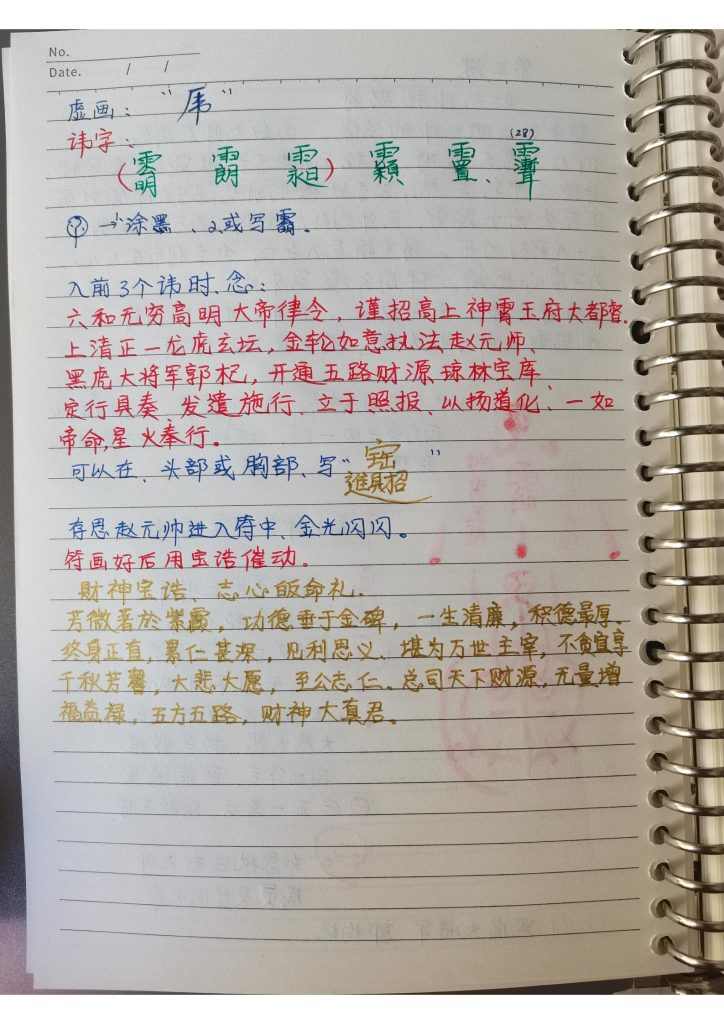 No.
Date. / /
虚画："厈"
讳字：
(28)
(雲明 雨朗 雨昶) 雨颖 雨置、雨漳
→涂黑、2或写霸。
入前3个讳时、念：
六和无穷高明大帝律令，谨招高上神霄玉府大都督.
上清正一龙虎玄坛，金轮如意执法赵元帅、
黑虎大将军郭杞，开通五路财源琼林宝库
定行具奏、发遣施行、立于照报、以扬道化、一如
帝命,星火奉行。
可以在、头部或胸部、写" "
存思赵元帅进入符中、金光闪闪。
符画好后用宝诰催动.
財神宝诰、志心皈命礼.
芳微著於紫霞，功德垂于金碑，一生清廉，积德最厚.
终身正直，累仁甚深，见利思义、堪为万世主宰，不贪宜享
千秋芳馨，大悲大愿，至公志仁.总司天下财源,无量增
福益禄，五方五路，财神大真君。